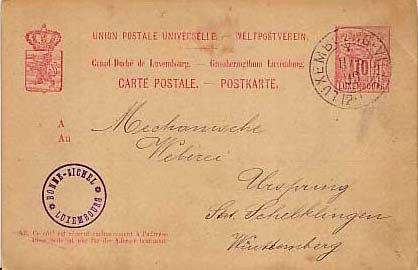 UNION POSTALE UNIVERSELLE. — WELTPOSTVEREIN.
Grand-Duché de Luxembourg. — Grossherzogthum Luxemburg.
CARTE POSTALE. — POSTKARTE.
10
LUXEMBOURG
A
An
Mechanische
Weberei
Urspring
Stat. Schelklingen
Württemberg
BONNE-SICHEL
LUXEMBOURG
NB. Ce côté est réservé exclusivement à l'adresse.
Diese Seite ist nur für die Adresse bestimmt.